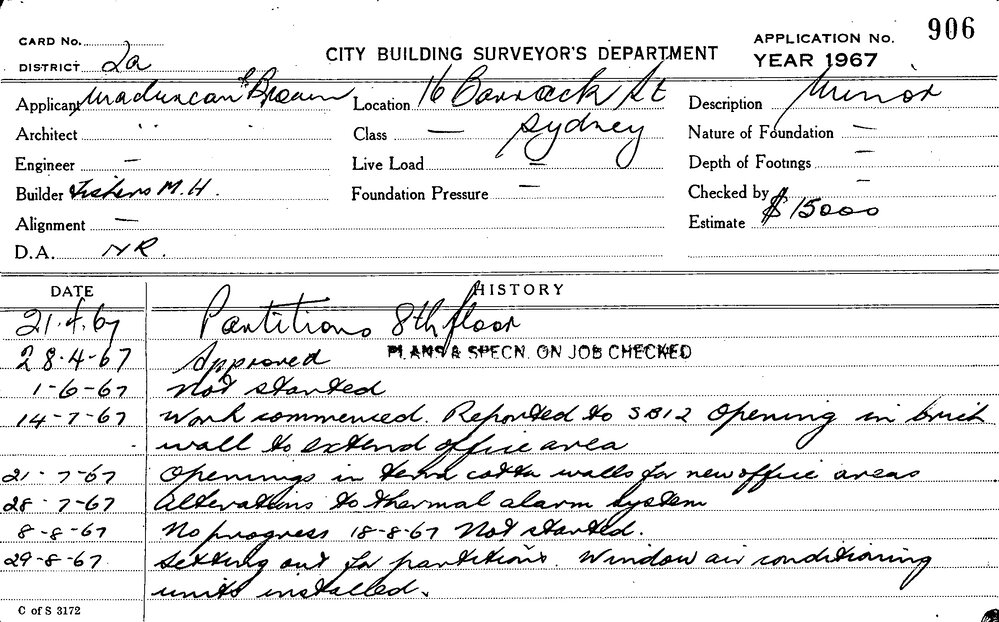 CARD No.
DISTRICT 2a
CITY BUILDING SURVEYOR'S DEPARTMENT
APPLICATION No. 906
YEAR 1967
Applicant & Brown
Location 16 Barrack St
Sydney
Description Minor
Architect "
Class —
Nature of Foundation —
Engineer —
Live Load —
Depth of Footings —
Builder Fishers M.H.
Foundation Pressure —
Checked by —
Alignment —
Estimate $15000
D.A. NR.
DATE HISTORY
21.4.67 Partitions 8th floor
28-4-67 Approved PLANS & SPECN. ON JOB CHECKED
1-6-67 Not started
14-7-67 Work commenced. Reported to SB12 Opening in brick
wall to extend office area
21-7-67 Openings in terra cotta walls for new office areas
28-7-67 Alterations to thermal alarm system
8-8-67 No progress 18-8-67 Not started.
29-8-67 Setting out for partitions. Window air conditioning
units installed.
C of S 3172